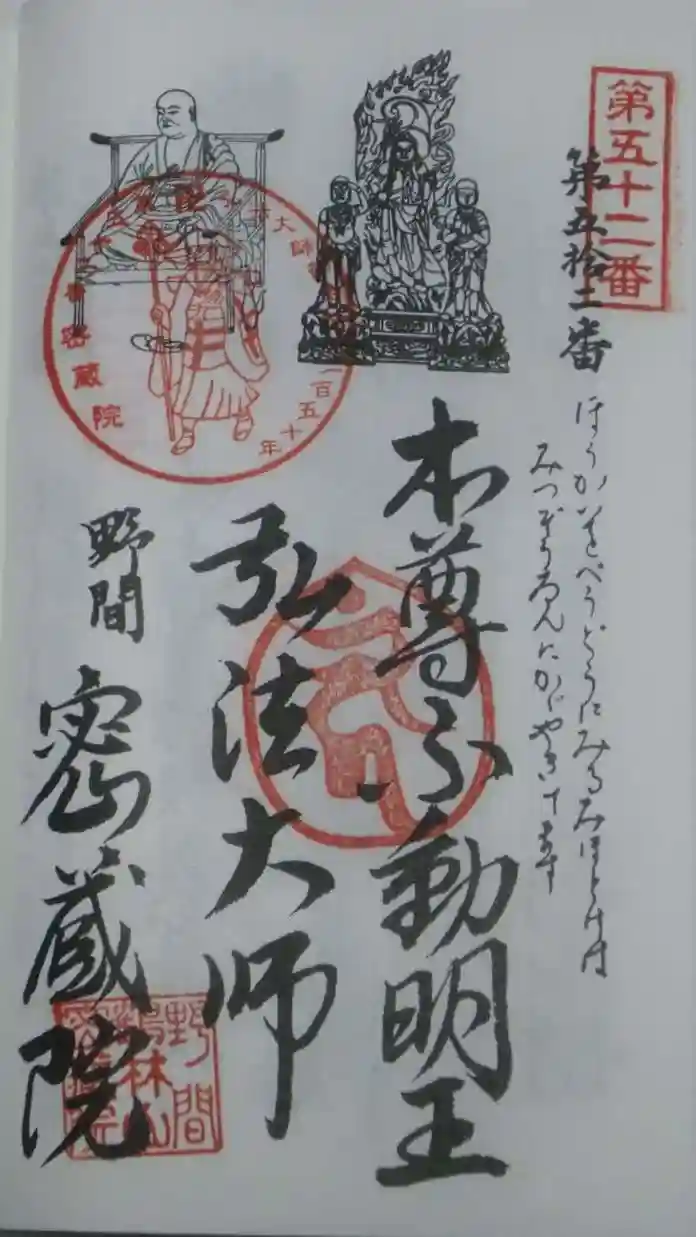 第五十二番
第五拾二番
ほうかいをへうどうにみるみほとけは
みつぞうゐんにかがやきけます
本尊不動明王
弘法大師
野間
密蔵院
大師
一百五十年
密蔵院
野間
鶴林山